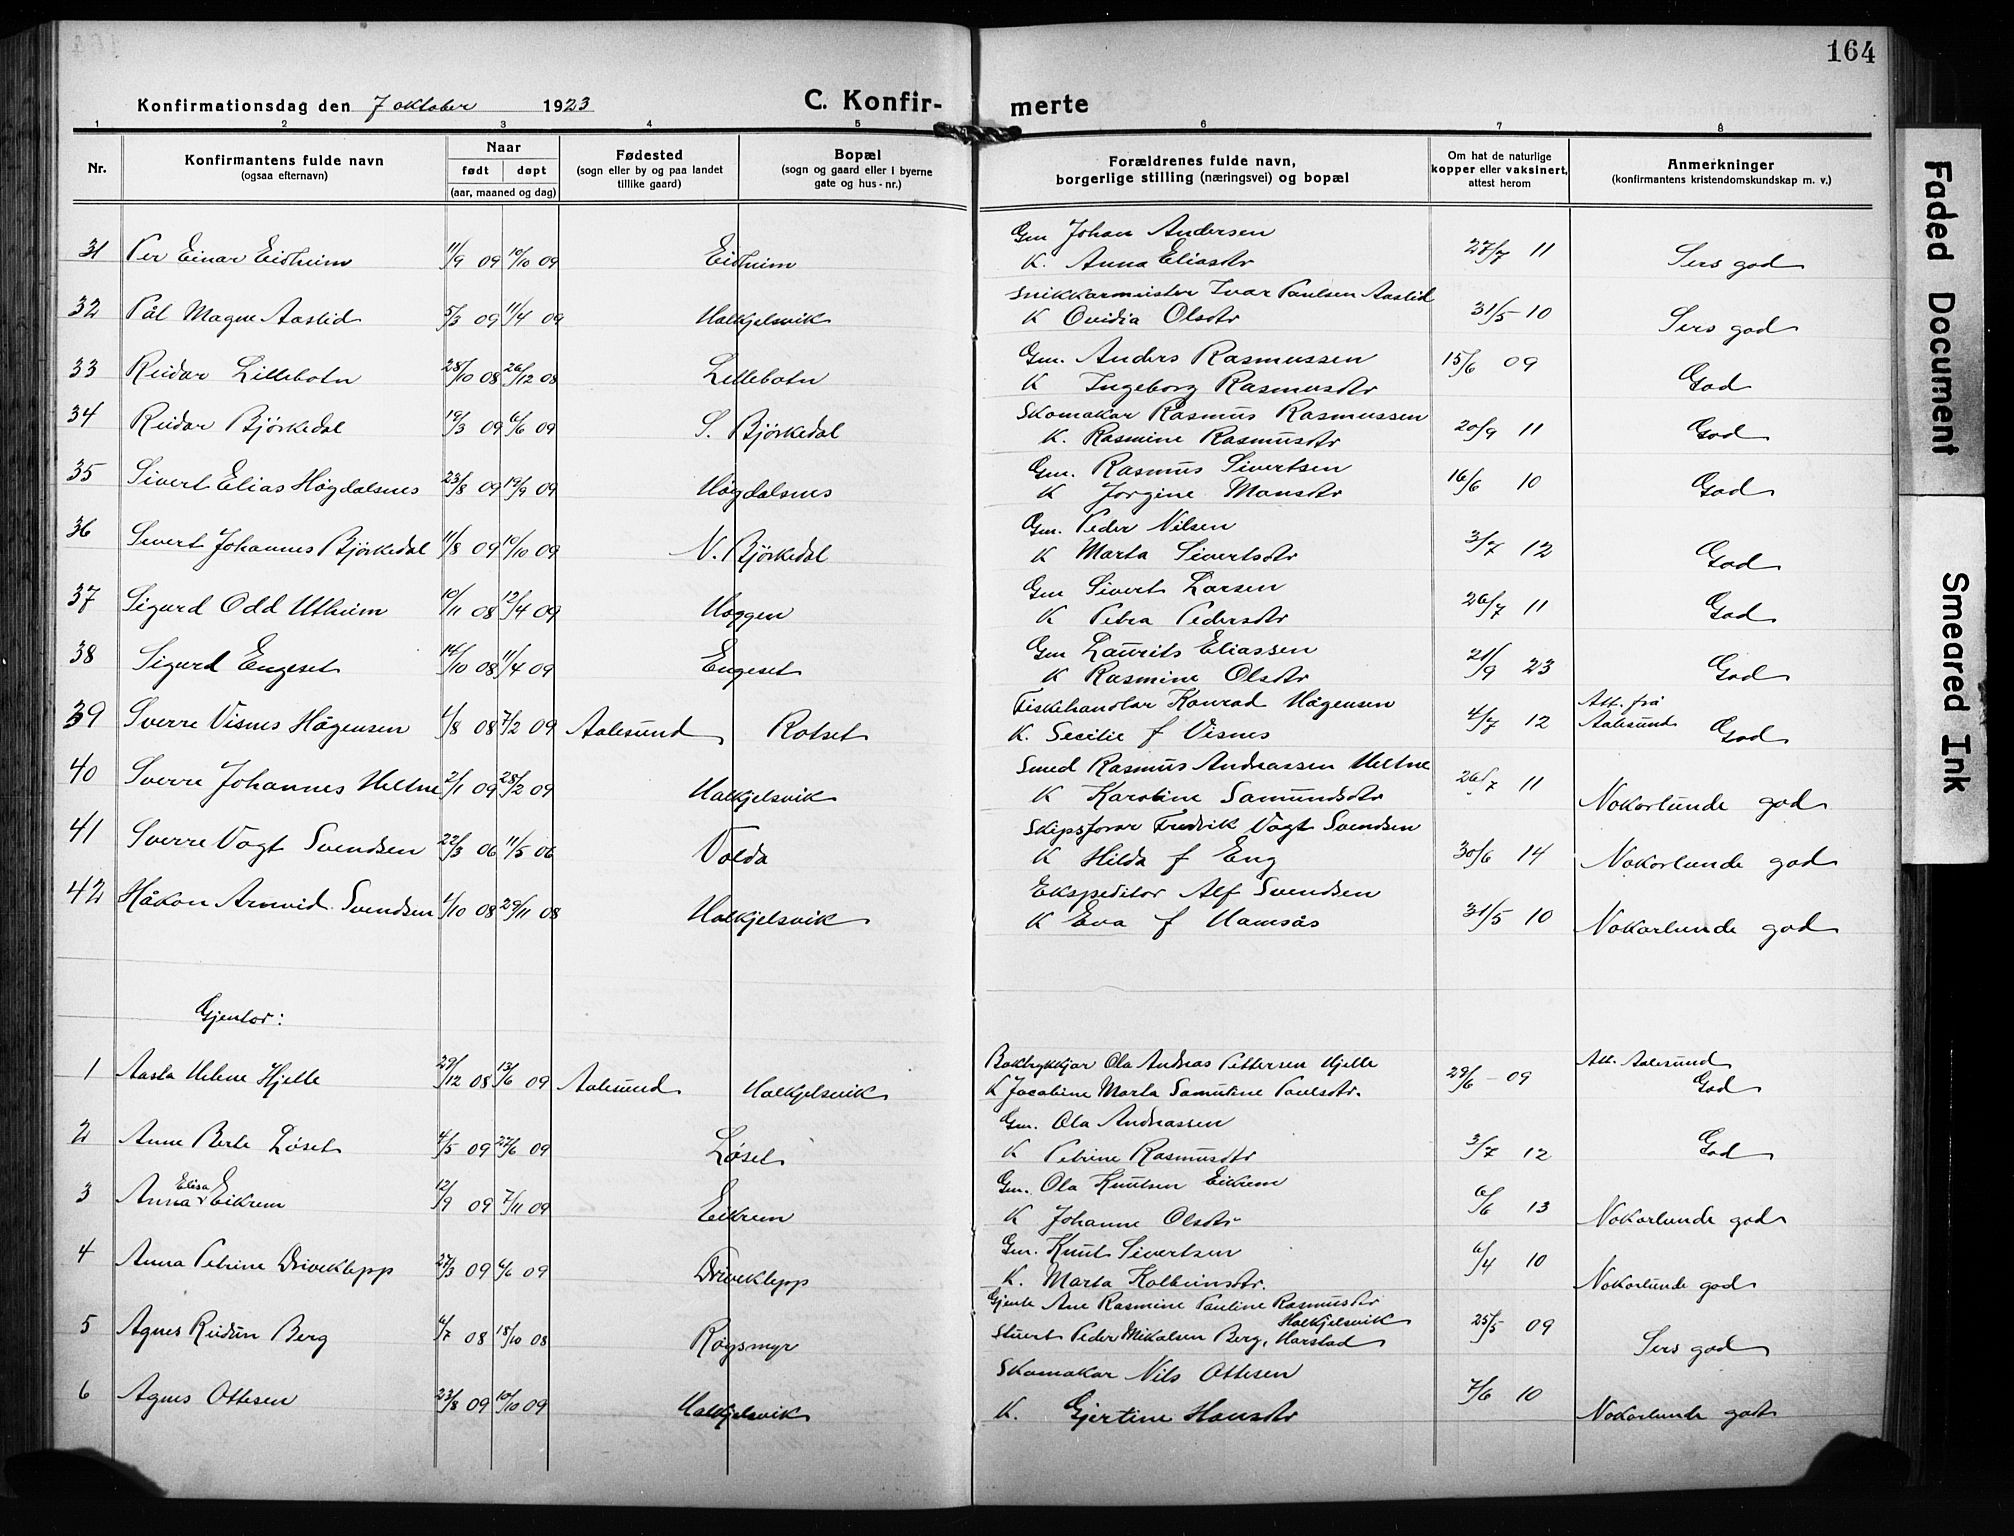 164
Konfirmationsdag den 7 oktober 1923 C. Konfir- merte
1 2 3 4 5 6 7 8
Nr. Konfirmantens fulde navn (ogsaa efternavn) Naar født døpt (aar, maaned og dag) Fødested (sogn eller by og paa landet tillike gaard) Bopæl (sogn og gaard eller i byerne gate og hus-nr.) Forældrenes fulde navn, borgerlige stilling (næringsvei) og bopæl Om hat de naturlige kopper eller vaksinert, attest herom Anmerkninger (konfirmantens kristendomskundskap m. v.)
Gm Johan Andersen
31 Per Einar Eidheim 11/9 09 10/10 09 Eidheim K. Anna Eliasdtr 27/7 11 Sers god
Snikkarmeister Ivar Paulsen Aaslid
32 Pål Magne Aaslid 5/3 09 11/4 09 Halkjelsvik K Ovidia Olsdtr 31/5 10 Sers god
Gm. Anders Rasmussen
33 Reidar Lillebotn 28/10 08 26/12 08 Lillebotn K Ingeborg Rasmusdtr 15/6 09 God
Skomakar Rasmus Rasmussen
34 Reidar Bjørkedal 19/3 09 6/6 09 S. Bjørkedal K. Rasmine Rasmusdtr 20/9 11 God
Gm. Rasmus Sivertsen
35 Sivert Elias Høgdalsnes 23/8 09 19/9 09 Høgdalsnes K Jorgine Monsdtr 16/6 10 God
Gm. Peder Nilsen
36 Sivert Johannes Bjørkedal 11/8 09 10/10 09 N. Bjørkedal K Marta Sivertsdtr 3/7 12 God
Gm Sivert Larsen
37 Sigurd Odd Utheim 10/11 08 12/4 09 Hoggen K Petra Pedersdtr 26/7 11 God
Gm Laurits Eliassen
38 Sigurd Engeset 14/10 08 11/4 09 Engeset K Rasmine Olsdtr 21/9 23 God
Fiskehandlar Konrad Hågensen Att. frå
39 Sverre Visnes Hågensen 1/8 08 7/2 09 Aalesund Rotset K. Secilie f Visnes 4/7 12 Aalesund God
Smed Rasmus Andreassen Heltne
40 Sverre Johannes Heltne 2/1 09 28/2 09 Halkjelsvik K Karoline Samundsdtr 26/7 11 Nokorlunde god
Skipsførar Fredrik Vogt Svendsen
41 Sverre Vogt Svendsen 22/3 06 11/5 06 Volda K Hilda f Eng 30/6 14 Nokorlunde god
Ekspeditor Alf Svendsen
42 Håkon Arnvid Svendsen 1/10 08 29/11 08 Halkjelsvik K Eva f Hamsås 31/5 10 Nokorlunde god
Gjentor:
Ola Andreas Pettersen Hjelle Att. Aalesund
1 Aasta Helene Hjelle 29/12 08 13/6 09 Aalesund Halkjelsvik K Jacobine Marta Samuline Paulsdtr. 29/6 - 09 God
Gm. Ola Andreassen
2 Anne Berte Løset 4/5 09 27/6 09 Løset K Petrine Rasmusdtr 3/7 12 God
Gm. Ola Knutsen Eikrem
3 Anna Elisa Eikrem 12/9 09 7/11 09 Eikrem K Johanne Olsdtr 6/6 13 Nokorlunde god
Gm. Knut Sivertsen
4 Anna Petrine Driveklepp 27/3 09 6/6 09 Driveklepp K. Marta Kolbeinsdtr. 6/4 10 Nokorlunde god
Gjente Ane Rasmine Pauline Rasmusdtr Halkjelsvik
5 Agnes Reidun Berg 6/7 08 18/10 08 Røysmyr Stuert Peder Mikalsen Berg, Harstad 25/5 09 Sers god
Skomakar Nils Ottesen
6 Agnes Ottesen 23/8 09 10/10 09 Halkjelsvik K. Gjertine Hansdtr 7/6 10 Nokorlunde god
Faded Document
Smeared Ink